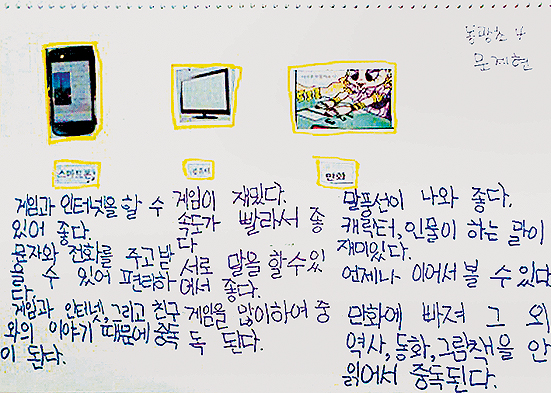 봉황초 4
문제현
스마트폰
컴퓨터
만화
게임과 인터넷을 할 수
있어 좋다.
문자와 전화를 주고받
을 수 있어 편리하
다.
게임과 인터넷, 그리고 친구
와의 이야기 때문에 중독
이 된다.
게임이 재밌다.
속도가 빨라서 좋
다
서로 말을 할 수 있
어서 좋다.
게임을 많이하여 중
독 된다.
말풍선이 나와 좋다.
캐릭터, 인물이 하는 말이
재미있다.
언제나 이어서 볼 수 있다
만화에 빠져 그 외
역사, 동화, 그림책을 안
읽어서 중독된다.